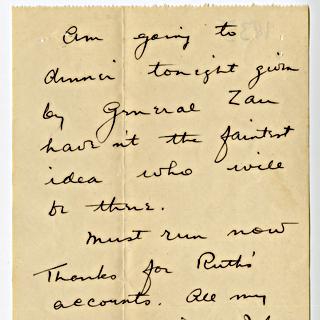 Am going to
dinner tonight given
by General Zau
haven't the faintest
idea who will
be there.
Must run now
Thanks for Ruth's
accounts. All my